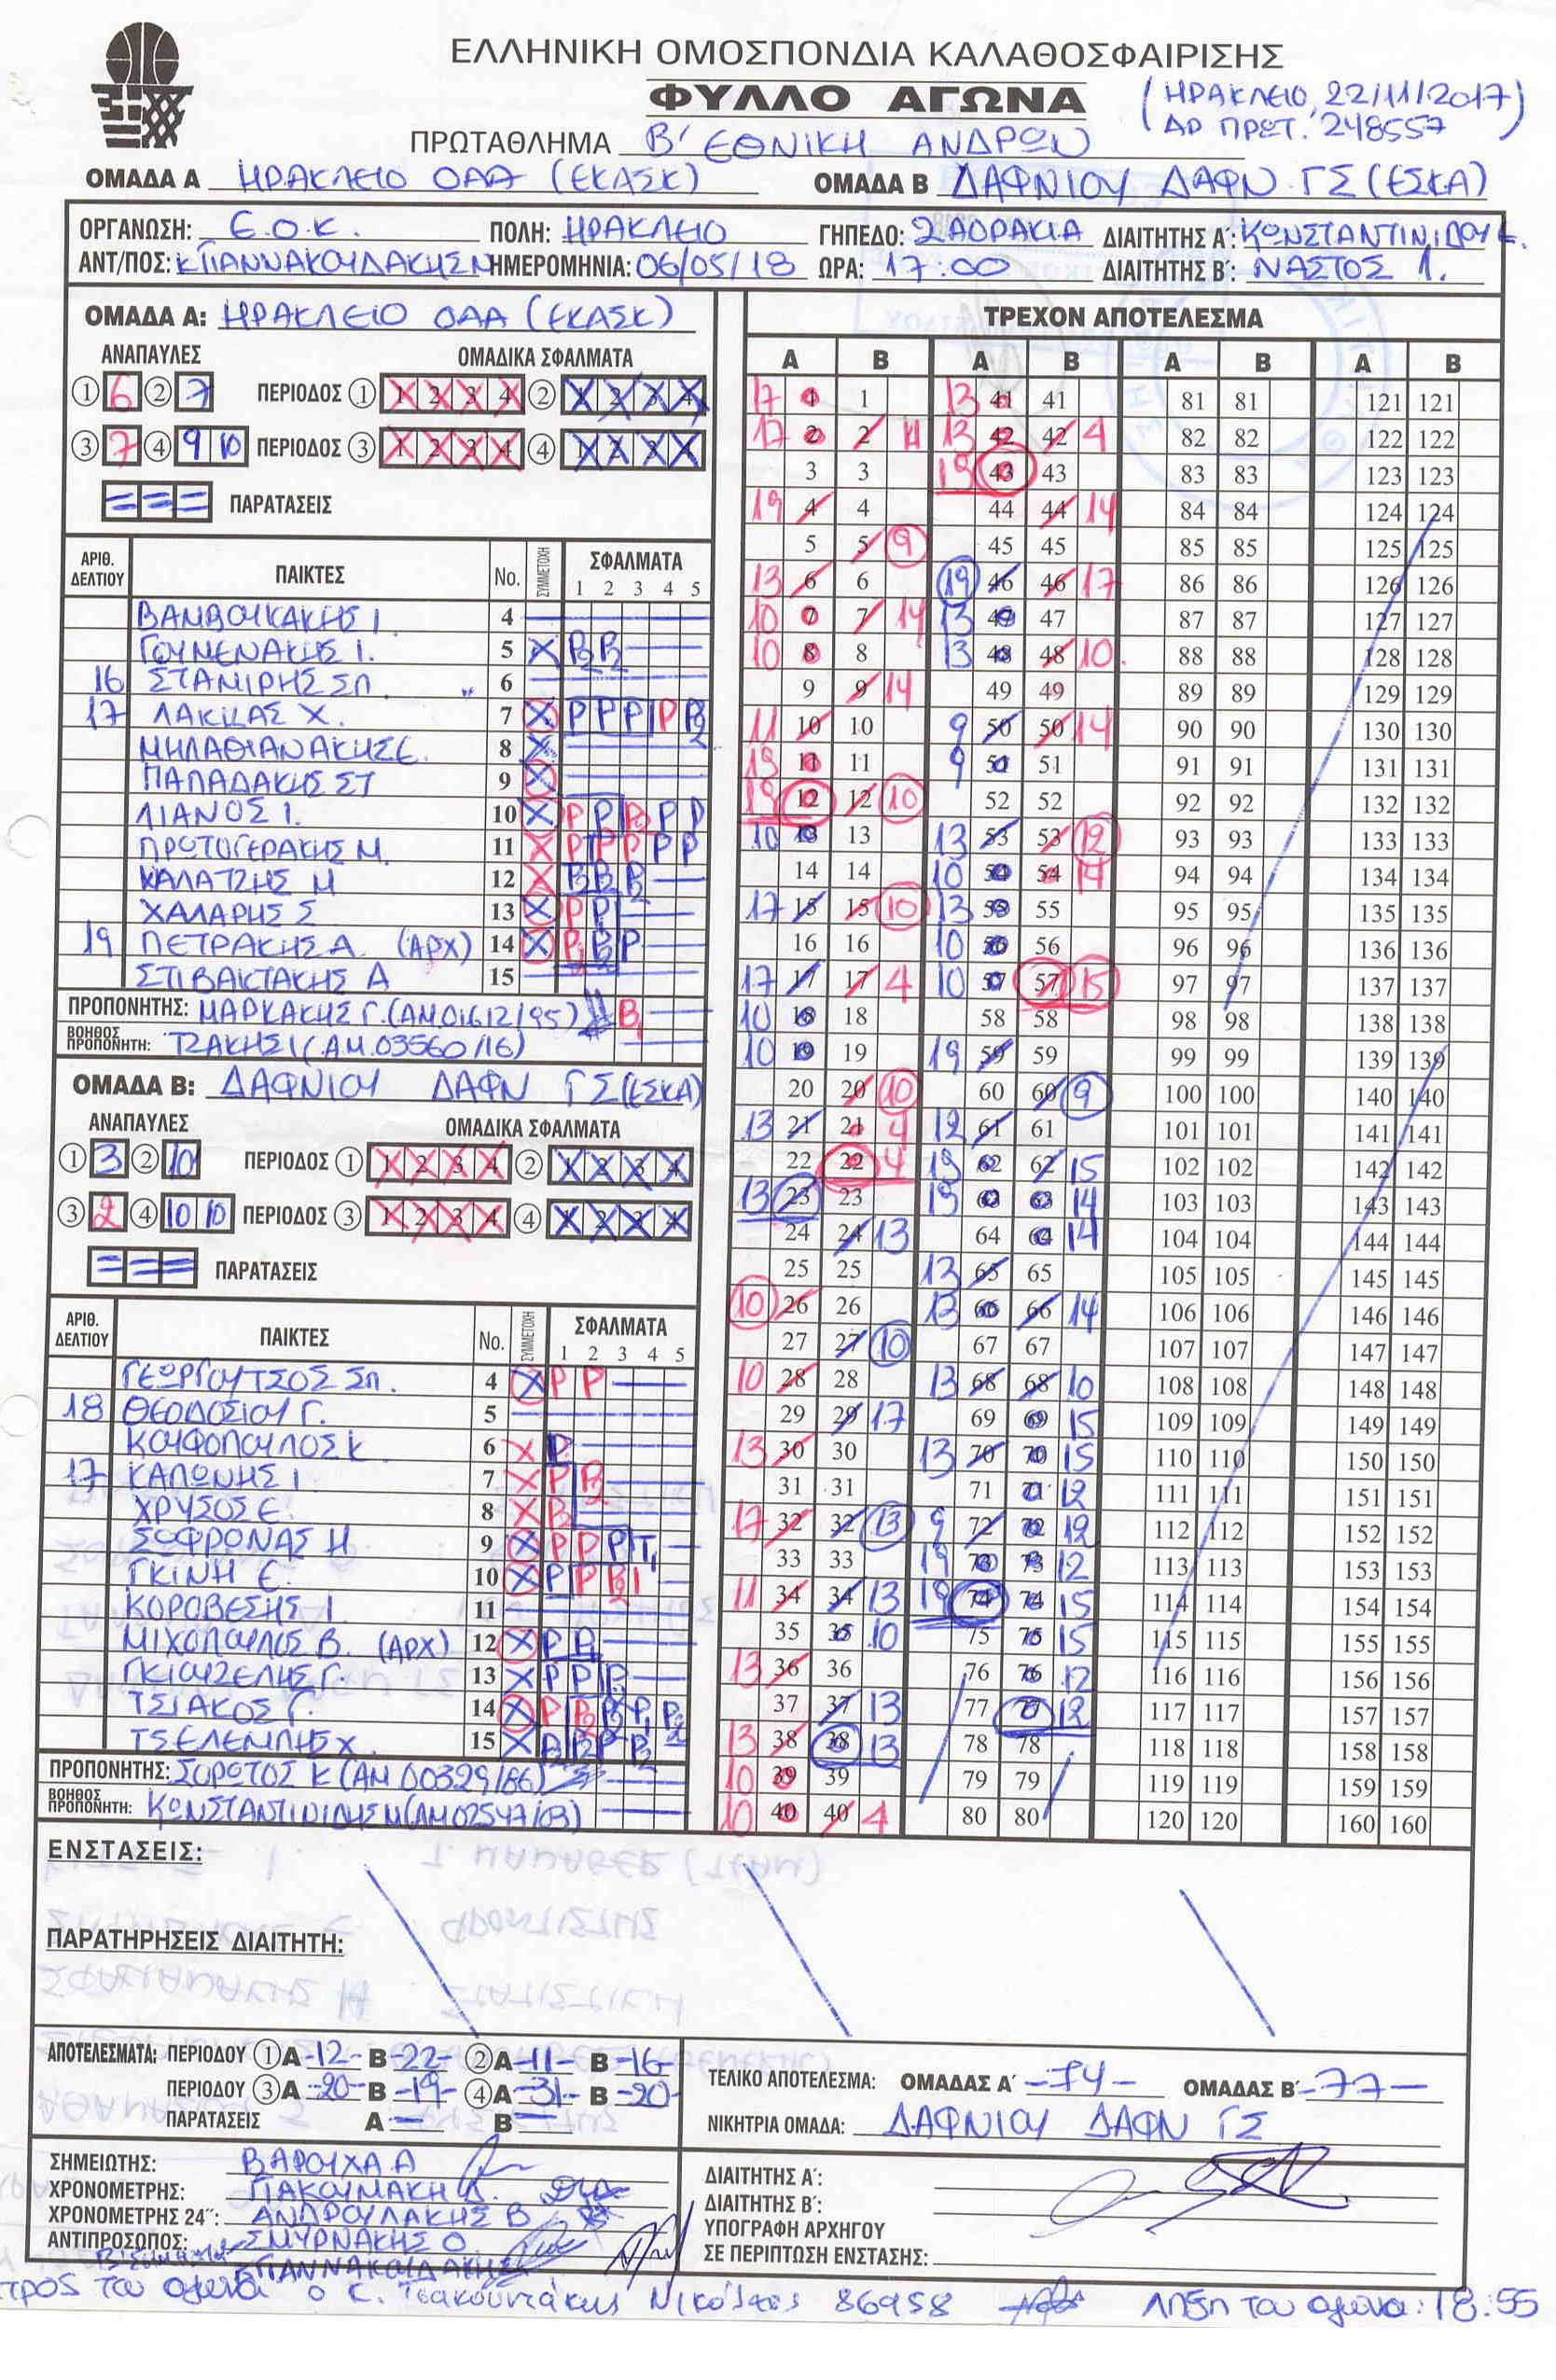 ΕΛΛΗΝΙΚΗ ΟΜΟΣΠΟΝΔΙΑ ΚΑΛΑΘΟΣΦΑΙΡΙΣΗΣ
ΦΥΛΛΟ ΑΓΩΝΑ
(ΗΡΑΚΛΕΙΟ, 22/11/2017)
(ΑΡ ΠΡΩΤ. 248557)
ΠΡΩΤΑΘΛΗΜΑ Β' ΕΘΝΙΚΗ ΑΝΔΡΩΝ
ΟΜΑΔΑ Α ΗΡΑΚΛΕΙΟ ΟΑΑ (ΕΚΑΣΚ) ΟΜΑΔΑ Β ΔΑΦΝΙΟΥ ΔΑΦΝ ΓΣ (ΕΣΚΑ)
ΟΡΓΑΝΩΣΗ: Ε.Ο.Κ. ΠΟΛΗ: ΗΡΑΚΛΕΙΟ ΓΗΠΕΔΟ: 2 ΑΟΡΑΚΙΑ ΔΙΑΙΤΗΤΗΣ Α΄: ΚΩΝΣΤΑΝΤΙΝΙΔΟΥ
ΑΝΤ/ΠΟΣ: ΓΙΑΝΝΑΚΟΥΔΑΚΗΣ Ν ΗΜΕΡΟΜΗΝΙΑ: 06/05/18 ΩΡΑ: 17:00 ΔΙΑΙΤΗΤΗΣ Β΄: ΝΑΣΤΟΣ Λ.
ΟΜΑΔΑ Α: ΗΡΑΚΛΕΙΟ ΟΑΑ (ΕΚΑΣΚ)
ΑΝΑΠΑΥΛΕΣ ΟΜΑΔΙΚΑ ΣΦΑΛΜΑΤΑ
1 6 2 7 ΠΕΡΙΟΔΟΣ 1 1 2 3 4 2 1 2 3 4
3 7 4 9 10 ΠΕΡΙΟΔΟΣ 3 1 2 3 4 4 1 2 3 4
ΠΑΡΑΤΑΣΕΙΣ
ΑΡΙΘ. ΔΕΛΤΙΟΥ ΠΑΙΚΤΕΣ No. ΣΥΜΜΕΤΟΧΗ ΣΦΑΛΜΑΤΑ 1 2 3 4 5
ΒΑΜΒΟΥΚΑΚΗΣ Ι. 4
ΓΟΥΜΕΝΑΚΗΣ Ι. 5 X P2 P2
16 ΣΤΑΜΙΡΗΣ ΣΠ. 6
17 ΛΑΚΙΔΑΣ Χ. 7 X P P P P P2
ΜΗΛΑΘΙΑΝΑΚΗΣ Ε. 8 X
ΠΑΠΑΔΑΚΗΣ ΣΤ 9 X
ΛΙΑΝΟΣ Ι. 10 X P P P2 P P
ΠΡΩΤΟΓΕΡΑΚΗΣ Μ. 11 X P P P P P
ΚΑΛΑΤΖΗΣ Μ 12 X P2 P2 P2
ΧΑΛΑΡΗΣ Σ 13 X P P
19 ΠΕΤΡΑΚΗΣ Α. (ΑΡΧ) 14 X P2 P2 P
ΣΤΙΒΑΚΤΑΚΗΣ Α 15
ΠΡΟΠΟΝΗΤΗΣ: ΜΑΡΚΑΚΗΣ Γ. (ΑΜ 01612/95) B1
ΒΟΗΘΟΣ ΠΡΟΠΟΝΗΤΗ: ΤΖΑΚΗΣ Ι (ΑΜ. 03560/16)
ΟΜΑΔΑ Β: ΔΑΦΝΙΟΥ ΔΑΦΝ ΓΣ (ΕΣΚΑ)
ΑΝΑΠΑΥΛΕΣ ΟΜΑΔΙΚΑ ΣΦΑΛΜΑΤΑ
1 3 2 10 ΠΕΡΙΟΔΟΣ 1 1 2 3 4 2 1 2 3 4
3 2 4 10 10 ΠΕΡΙΟΔΟΣ 3 1 2 3 4 4 1 2 3 4
ΠΑΡΑΤΑΣΕΙΣ
ΑΡΙΘ. ΔΕΛΤΙΟΥ ΠΑΙΚΤΕΣ No. ΣΥΜΜΕΤΟΧΗ ΣΦΑΛΜΑΤΑ 1 2 3 4 5
ΓΕΩΡΓΟΥΤΣΟΣ ΣΠ. 4 X P P
18 ΘΕΟΔΟΣΙΟΥ Γ. 5
ΚΟΥΦΟΠΟΥΛΟΣ Κ 6 X P
17 ΚΑΛΩΝΗΣ Ι. 7 X P P2
ΧΡΥΣΟΣ Ε. 8 X
ΣΟΦΡΟΝΑΣ Η 9 X P P P T1
ΓΚΙΝΗ Ε. 10 X P P
ΚΟΡΟΒΕΣΗΣ Ι 11
ΜΙΧΟΠΟΥΛΟΣ Β. (ΑΡΧ) 12 X P
ΓΚΙΟΥΖΕΛΗΣ Γ. 13 X P P
ΤΣΙΑΚΟΣ Γ. 14 X P
ΤΣΕΛΕΜΠΗΣ Χ. 15 X
ΠΡΟΠΟΝΗΤΗΣ: ΣΟΡΩΤΟΣ Κ (ΑΜ 00329/86)
ΒΟΗΘΟΣ ΠΡΟΠΟΝΗΤΗ: ΚΩΝΣΤΑΝΤΙΝΙΔΗΣ Μ (ΑΜ 02547/03)
ΤΡΕΧΟΝ ΑΠΟΤΕΛΕΣΜΑ
Α Β Α Β Α Β Α Β
17 1 1 13 41 41 81 81 121 121
17 2 2 11 13 42 42 4 82 82 122 122
3 3 19 43 43 83 83 123 123
19 4 4 44 44 14 84 84 124 124
5 5 9 45 45 85 85 125 125
13 6 6 19 46 46 17 86 86 126 126
10 7 7 14 13 47 47 87 87 127 127
10 8 8 13 48 48 10 88 88 128 128
9 9 14 49 49 89 89 129 129
11 10 10 9 50 50 14 90 90 130 130
19 11 11 9 51 51 91 91 131 131
19 12 12 10 52 52 92 92 132 132
10 13 13 13 53 53 12 93 93 133 133
14 14 10 54 54 14 94 94 134 134
17 15 15 10 13 55 55 95 95 135 135
16 16 10 56 56 96 96 136 136
17 17 17 4 10 57 57 15 97 97 137 137
10 18 18 58 58 98 98 138 138
10 19 19 19 59 59 99 99 139 139
20 20 10 60 60 9 100 100 140 140
13 21 21 4 12 61 61 101 101 141 141
22 22 4 19 62 62 15 102 102 142 142
13 23 23 19 63 63 14 103 103 143 143
24 24 13 64 64 14 104 104 144 144
25 25 13 65 65 105 105 145 145
10 26 26 13 66 66 14 106 106 146 146
27 27 10 67 67 107 107 147 147
10 28 28 13 68 68 10 108 108 148 148
29 29 17 69 69 15 109 109 149 149
13 30 30 13 70 70 15 110 110 150 150
31 31 71 71 12 111 111 151 151
17 32 32 13 9 72 72 12 112 112 152 152
33 33 19 73 73 12 113 113 153 153
11 34 34 13 19 74 74 15 114 114 154 154
35 35 10 75 75 15 115 115 155 155
13 36 36 76 76 12 116 116 156 156
37 37 13 77 77 12 117 117 157 157
13 38 38 13 78 78 118 118 158 158
10 39 39 79 79 119 119 159 159
10 40 40 4 80 80 120 120 160 160
ΕΝΣΤΑΣΕΙΣ:
ΠΑΡΑΤΗΡΗΣΕΙΣ ΔΙΑΙΤΗΤΗ:
ΑΠΟΤΕΛΕΣΜΑΤΑ: ΠΕΡΙΟΔΟΥ 1 Α -12- Β -22- 2 Α -11- Β -16-
ΠΕΡΙΟΔΟΥ 3 Α -20- Β -19- 4 Α -31- Β -20-
ΠΑΡΑΤΑΣΕΙΣ Α — Β —
ΤΕΛΙΚΟ ΑΠΟΤΕΛΕΣΜΑ: ΟΜΑΔΑΣ Α΄ -74- ΟΜΑΔΑΣ Β΄ -77-
ΝΙΚΗΤΡΙΑ ΟΜΑΔΑ: ΔΑΦΝΙΟΥ ΔΑΦΝ ΓΣ
ΣΗΜΕΙΩΤΗΣ: ΒΑΡΟΥΧΑ Α
ΧΡΟΝΟΜΕΤΡΗΣ: ΓΙΑΚΟΥΜΑΚΗ Δ.
ΧΡΟΝΟΜΕΤΡΗΣ 24΄΄: ΑΝΔΡΟΥΛΑΚΗΣ Β
ΑΝΤΙΠΡΟΣΩΠΟΣ: ΣΜΥΡΝΑΚΗΣ Ο
ΓΙΑΝΝΑΚΟΥΔΑΚΗΣ
ΔΙΑΙΤΗΤΗΣ Α΄:
ΔΙΑΙΤΗΤΗΣ Β΄:
ΥΠΟΓΡΑΦΗ ΑΡΧΗΓΟΥ
ΣΕ ΠΕΡΙΠΤΩΣΗ ΕΝΣΤΑΣΗΣ:
τρος του αγωνα ο κ. Τσακουντάκης Νικόλαος 86958 Ληξη του αγωνα: 18:55